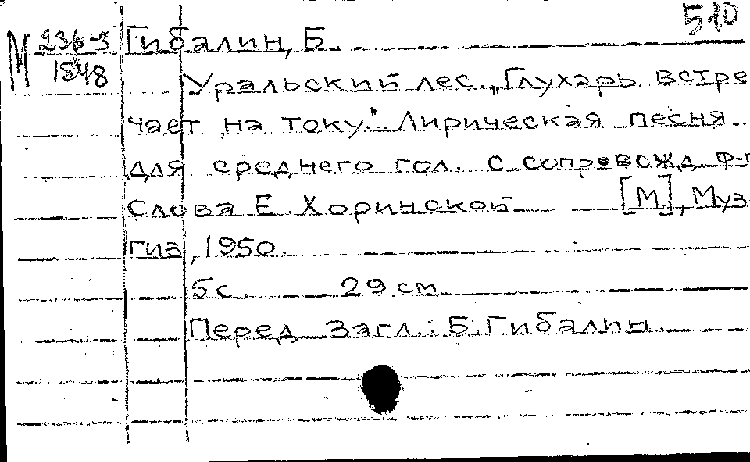 510
М 236-3
1548
Гибалин, Б.
Уральский лес. "Глухарь встре
чает на току." Лирическая песня.
Для среднего гол. с сопровожд ф-п
Слова Е. Хоринской [М.], Муз
гиз, 1950.
5с. 29 см
Перед загл.: Б. Гибалин.